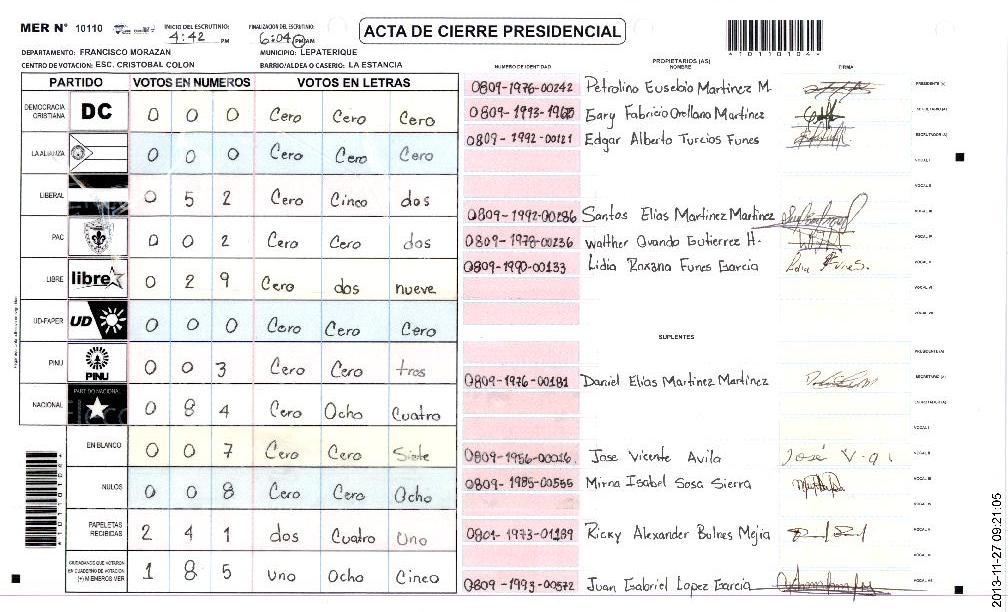 MER N° 10110 INICIO DEL ESCRUTINIO: 4:42 PM FINALIZACIÓN DEL ESCRUTINIO: 6:04 PM/AM
ACTA DE CIERRE PRESIDENCIAL
*10110104*
DEPARTAMENTO: FRANCISCO MORAZAN MUNICIPIO: LEPATERIQUE
CENTRO DE VOTACION: ESC. CRISTOBAL COLON BARRIO/ALDEA O CASERIO: LA ESTANCIA
PARTIDO VOTOS EN NUMEROS VOTOS EN LETRAS
DEMOCRACIA CRISTIANA DC 0 0 0 Cero Cero Cero
LA ALIANZA 0 0 0 Cero Cero Cero
LIBERAL 0 5 2 Cero Cinco dos
PAC 0 0 2 Cero Cero dos
LIBRE libre 0 2 9 Cero dos nueve
UD-FAPER UD 0 0 0 Cero Cero Cero
PINU PINU 0 0 3 Cero Cero tres
NACIONAL PARTIDO NACIONAL 0 8 4 Cero Ocho Cuatro
EN BLANCO 0 0 7 Cero Cero Siete
NULOS 0 0 8 Cero Cero Ocho
PAPELETAS RECIBIDAS 2 4 1 dos Cuatro Uno
CIUDADANOS QUE VOTARON EN CUADERNO DE VOTACION (+) MIEMBROS MER 1 8 5 uno Ocho Cinco
NUMERO DE IDENTIDAD PROPIETARIOS (AS) NOMBRE FIRMA
0809-1976-00242 Petrolino Eusebio Martinez M. PRESIDENTE (A)
0809-1993-Gary Fabricio Orellana Martinez SECRETARIO (A)
0809-1992-00121 Edgar Alberto Turcios Funes ESCRUTADOR (A)
VOCAL I
VOCAL II
0809-1992-00286 Santos Elias Martinez Martinez VOCAL III
0809-1978-00236 Walther Ovando Gutierrez H. VOCAL IV
0809-1990-00133 Lidia Roxana Funes Garcia VOCAL V
VOCAL VI
VOCAL VII
SUPLENTES
PRESIDENTE (A)
0809-1976-00181 Daniel Elias Martinez Martinez SECRETARIO (A)
ESCRUTADOR (A)
VOCAL I
0809-1956-00016 Jose Vicente Avila José V-a VOCAL II
0809-1985-00555 Mirna Isabel Sosa Sierra VOCAL III
VOCAL IV
0801-1973-01189 Ricky Alexander Bulnes Mejia VOCAL V
VOCAL VI
0809-1993-00572 Juan Gabriel Lopez Garcia VOCAL VII
*10110104*
2013-11-27 09:21:05